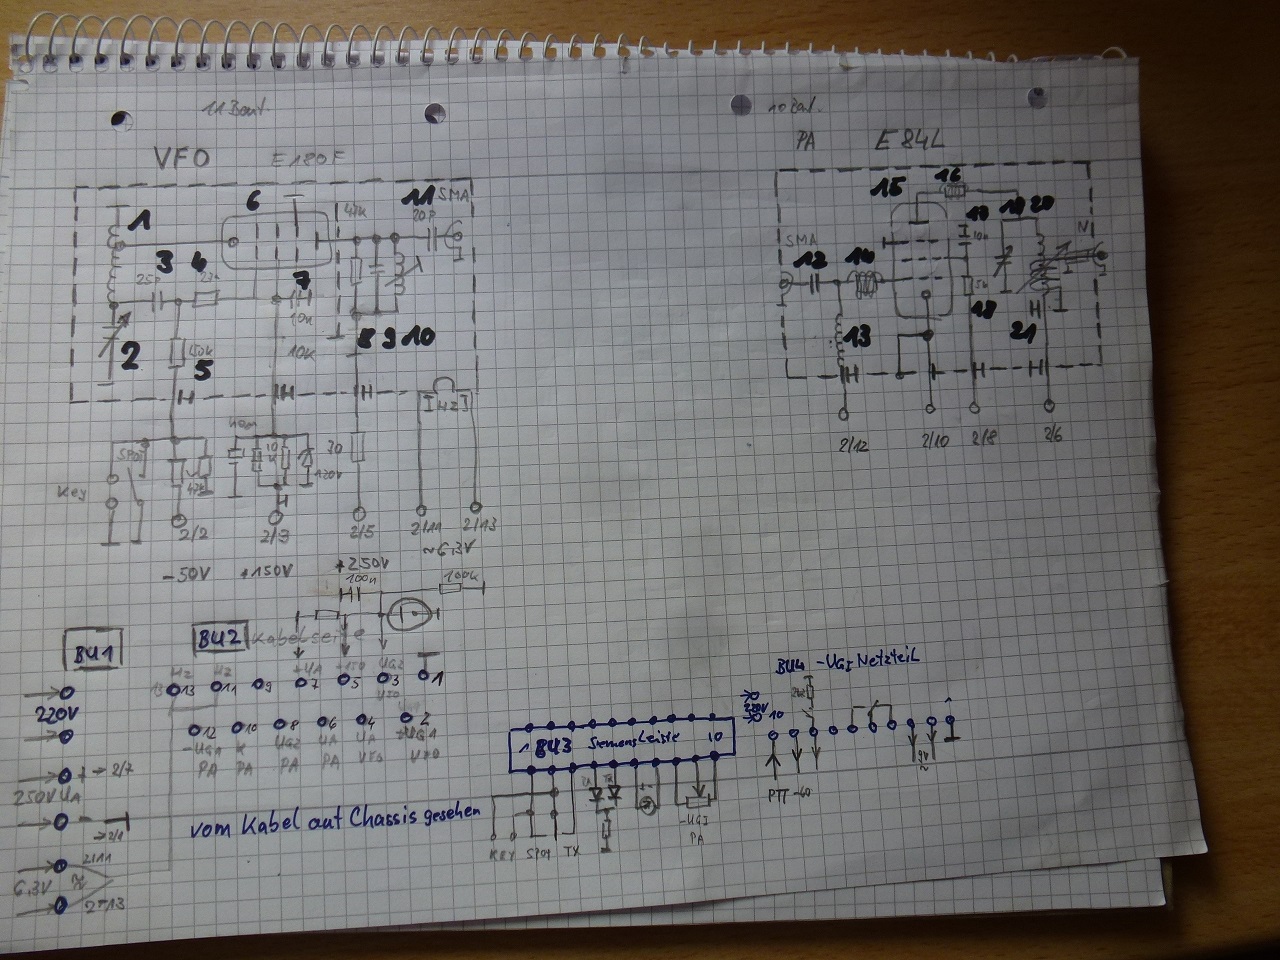 VFO E180F
PA E84L
1 6 11 SMA
20p
3 4
25p
7
10n
10k
2 5 8 9 10
15 16
SMA
12 14 19 20 N
13 18 21
HZ
30
120V
SPOT
Key
2/2 2/3 2/5 2/11 2/13
~6,3V
-50V +150V +250V
100n 100k
2/12 2/10 2/8 2/6
BU1
220V
+ → 2/7
250V UA
- → 2/1
2/11
6,3V
2/13
BU2 Kabelseite
HZ HZ +UA +150 UG2
13 11 9 7 5 3 1
VFO
12 10 8 6 4 2
-UG1 K UG2 UA UA -UG1
PA PA PA PA VFO VFO
vom Kabel auf Chassis gesehen
1 BU3 Siemensleiste 10
KEY SPOT TX
-UG1
PA
BU4 -UG1 Netzteil
220V
10 1
PTT -60